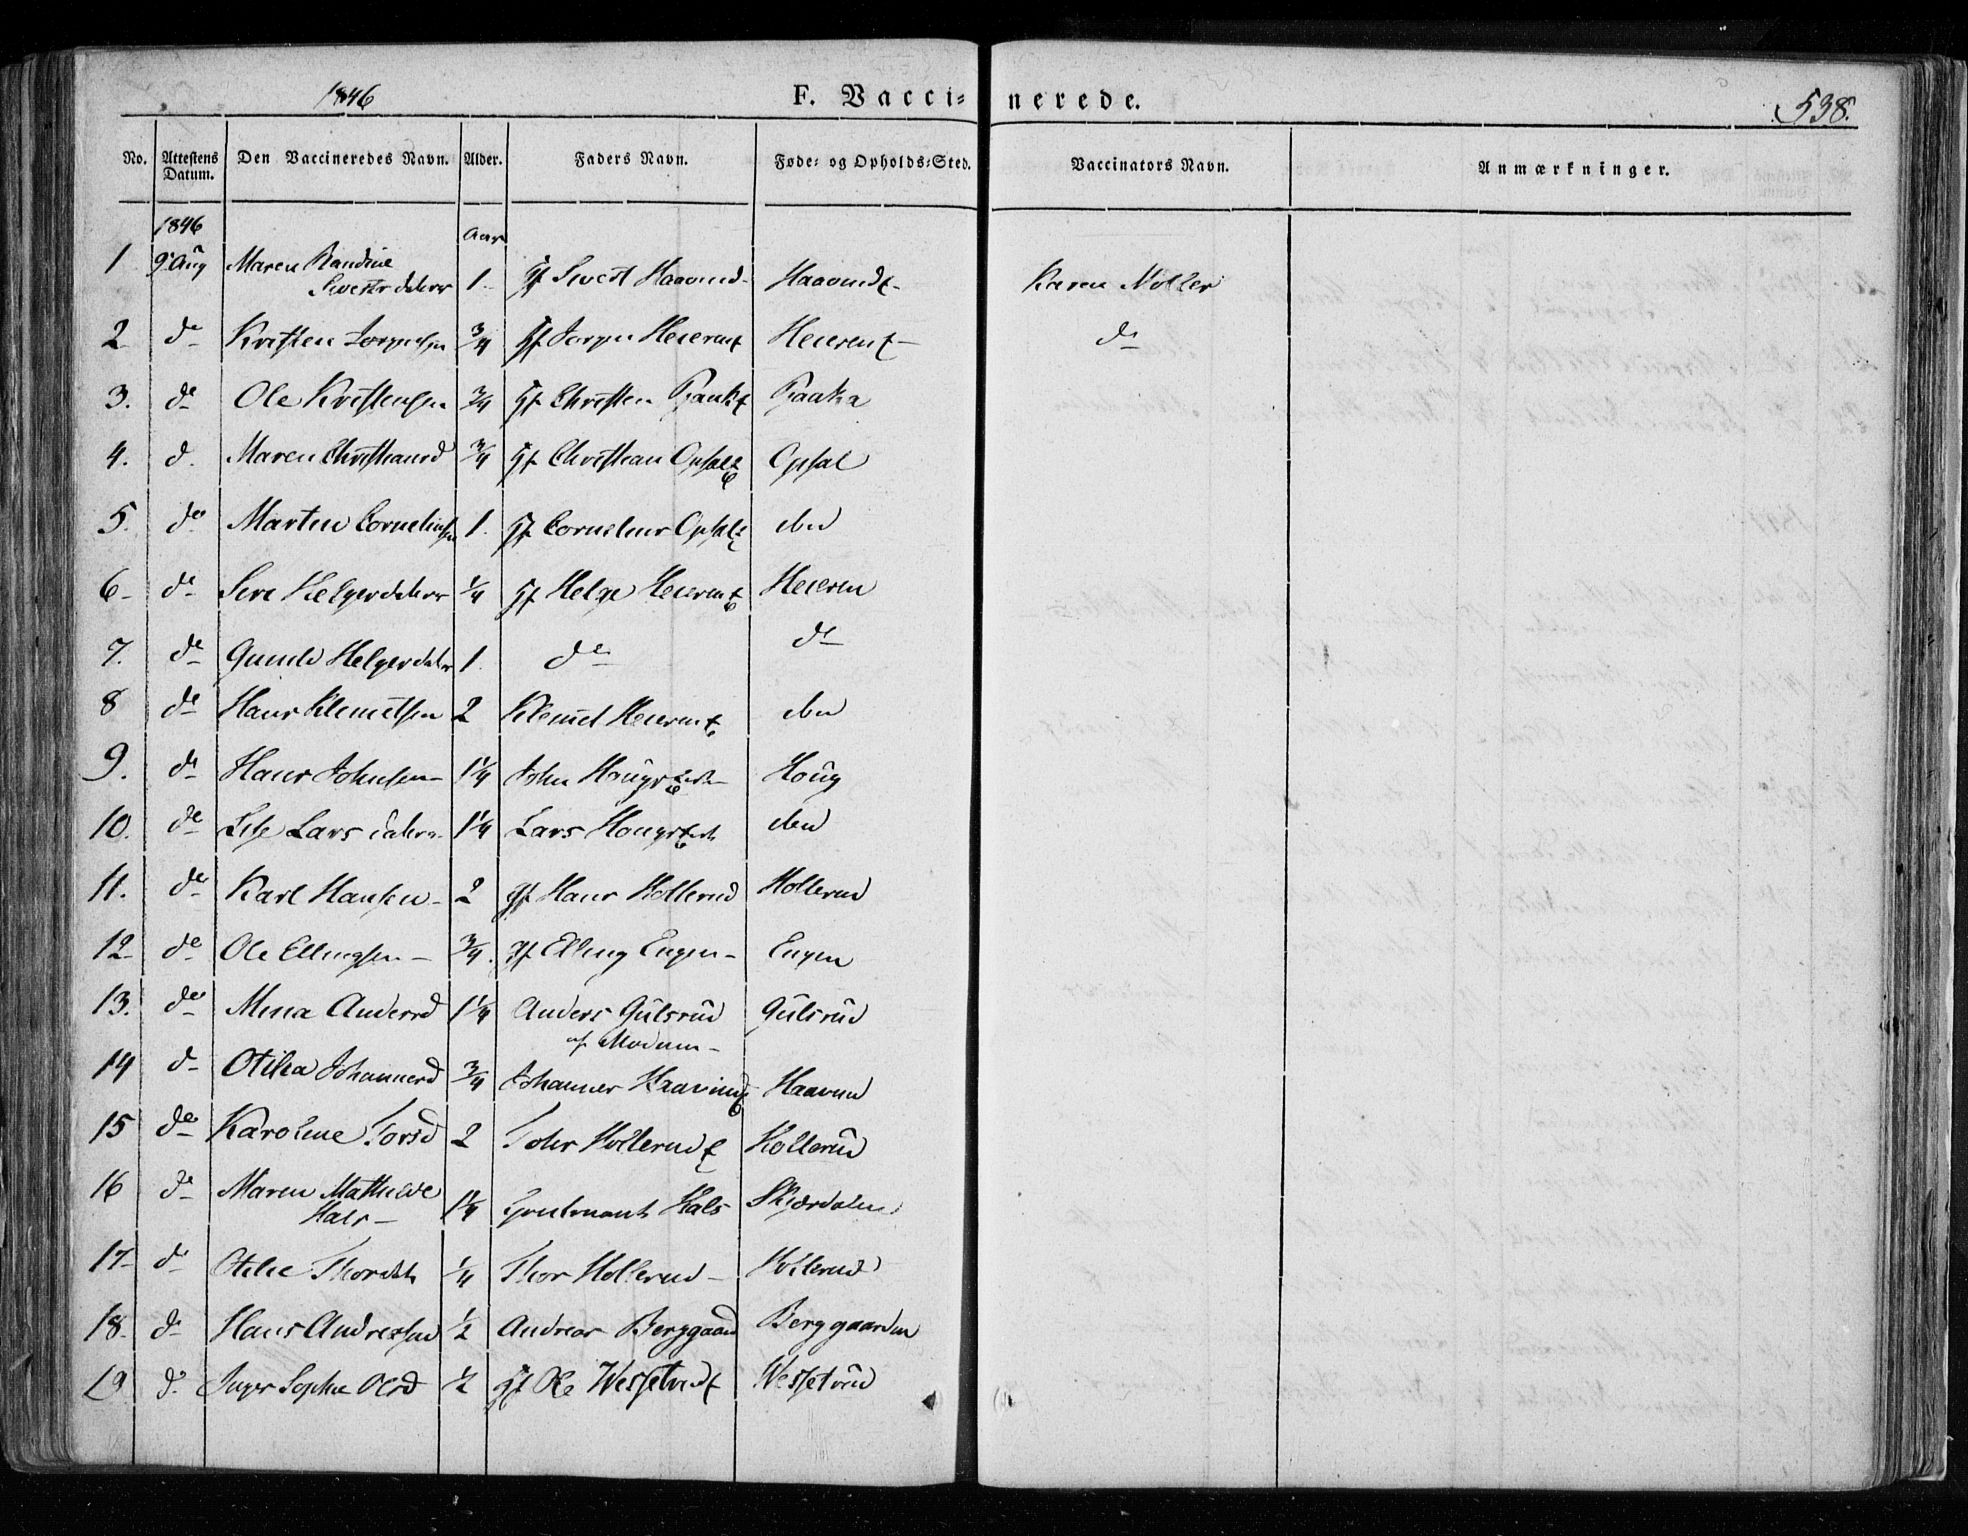 1846
F. Vacci= nerede.
538.
No. Attestens Datum. Den Vaccineredes Navn. Alder. Faders Navn. Føde= og Opholds=Sted. Vaccinators Navn. Anmærkninger.
1846 Aar
1 9 Aug Maren Randine
Siverts datter 1. Gf Sivert Haavind Karen Møller
2 do Kristen Jørgensen 3/4 Gf Jørgen Heieren Heieren do
3. do Ole Kristensen 3/4 Gf Christen
4. d. Maren Christiansd 3/4 Gf Christian Opsal Opsal
5. do Marten Corneliusen 1. Gf Cornelius Opsal
6 do Siri Helgesdatter 1/4 Gf Helge Heieren Heieren
7. do Helgesdatter 1. do do
8 do Hans Klemetsen 2 Klemet Heieren
9. do Hans Johnsen 1 1/4 John Houg
10. do Lise Lars datter 1 1/4 Lars
11. do Karl Hansen 2 Gf Hans Hollerud Hollerud
12 do Ole Ellingsen 3/4. Gf Elling Engen Engen
13. do Mina Andersd 1 1/4 Anders Gulsrud Gulsrud
af Modum
14 do Otilia Johannesd 3/4 Johannes
15 do Karoline Torsd 2 Hollerud
16 do Maren Mathilde
Hals 1 1/4 Hals Skjærdalen
17 do Otilie 1/4 Thor Hollerud Hollerud
18. do Hans Andreasen 1/2 Andreas Berggaard Berggaarden
19 do Inger Sophie Olsd 1/2 Gf Ole Wessetrud Wessetrud